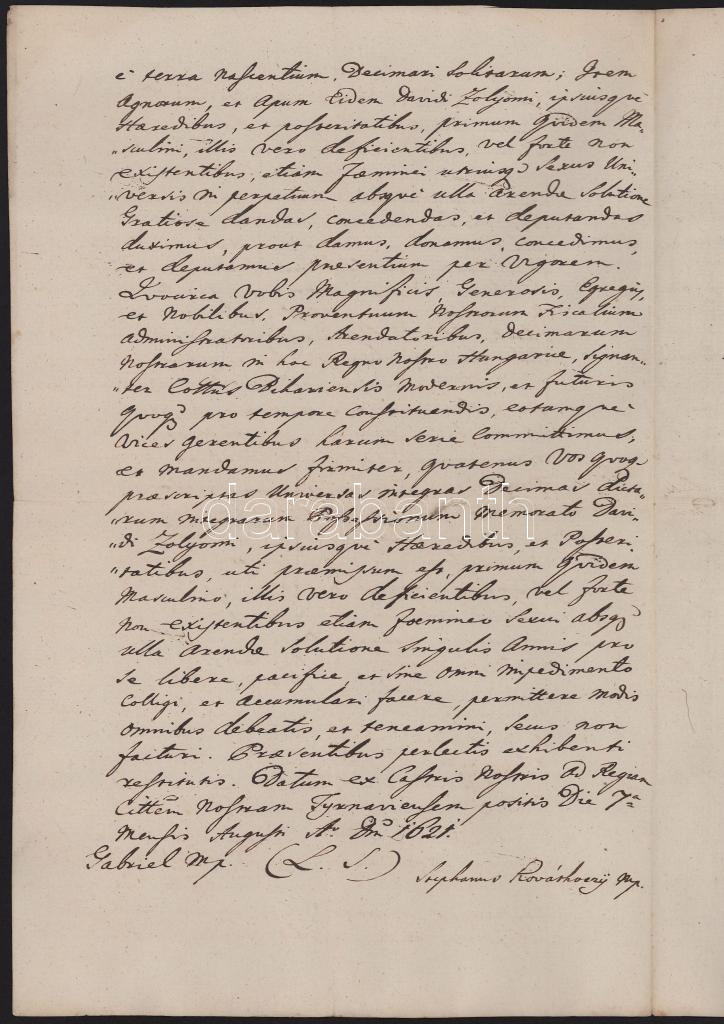 è terra nascentium, Decimari Solitarum; Item
Agnorum, et Apum Eidem Davidi Zolyomi, ipsiusque
Hæredibus, et posteritatibus, primum quidem Ma„
„sculini, illis vero deficientibus, vel forte non
existentibus, etiam Fæminei utriusq3 Sexus Uni„
„versis in perpetuum absque ulla Arendæ Solutione
Gratiose dandas, concedendas, et deputandas
duximus, prout damus, donamus, concedimus,
et deputamus præsentium per Vigorem.
Quocirca vobis Magnificis, Generosis, Egregiis,
et Nobilibus, Proventuum Nostrorum Fiscalium
Administratoribus, Arendatoribus, Decimarum
Nostrarum in hoc Regno Nostro Hungariæ, Signan„
„ter Cottus Bihariensis Modernis, et futuris
quoq3 pro tempore constituendis, eorumque
vices gerentibus harum serie Committimus,
et mandamus firmiter, quatenus Vos quoq3
præscriptas Universas integras Decimas dicta„
„rum integrarum Possessionum Memorato Davi„
„di Zolyomi, ipsiusque Hæredibus, et Posteri„
„tatibus, uti præmissum est, primum quidem
Masculino, illis vero deficientibus, vel forte
non existentibus etiam foemineo Sexui absq3
ulla Arendæ Solutione Singulis Annis pro
se libere, pacifice, et sine omni impedimento
Colligi, et accumulari facere, permittere modis
omnibus debeatis, et teneamini, Secus non
facturi. Præsentibus perlectis exhibenti
restitutis. Datum ex Castris Nostris ad Regiam
Cittem Nostram Tyrnaviensem positis Die 7a
Mensis Augusti Ao Dni 1621.
Gabriel mp. (L. S.)
Stephanus Kováshoczij mp.
darabanth